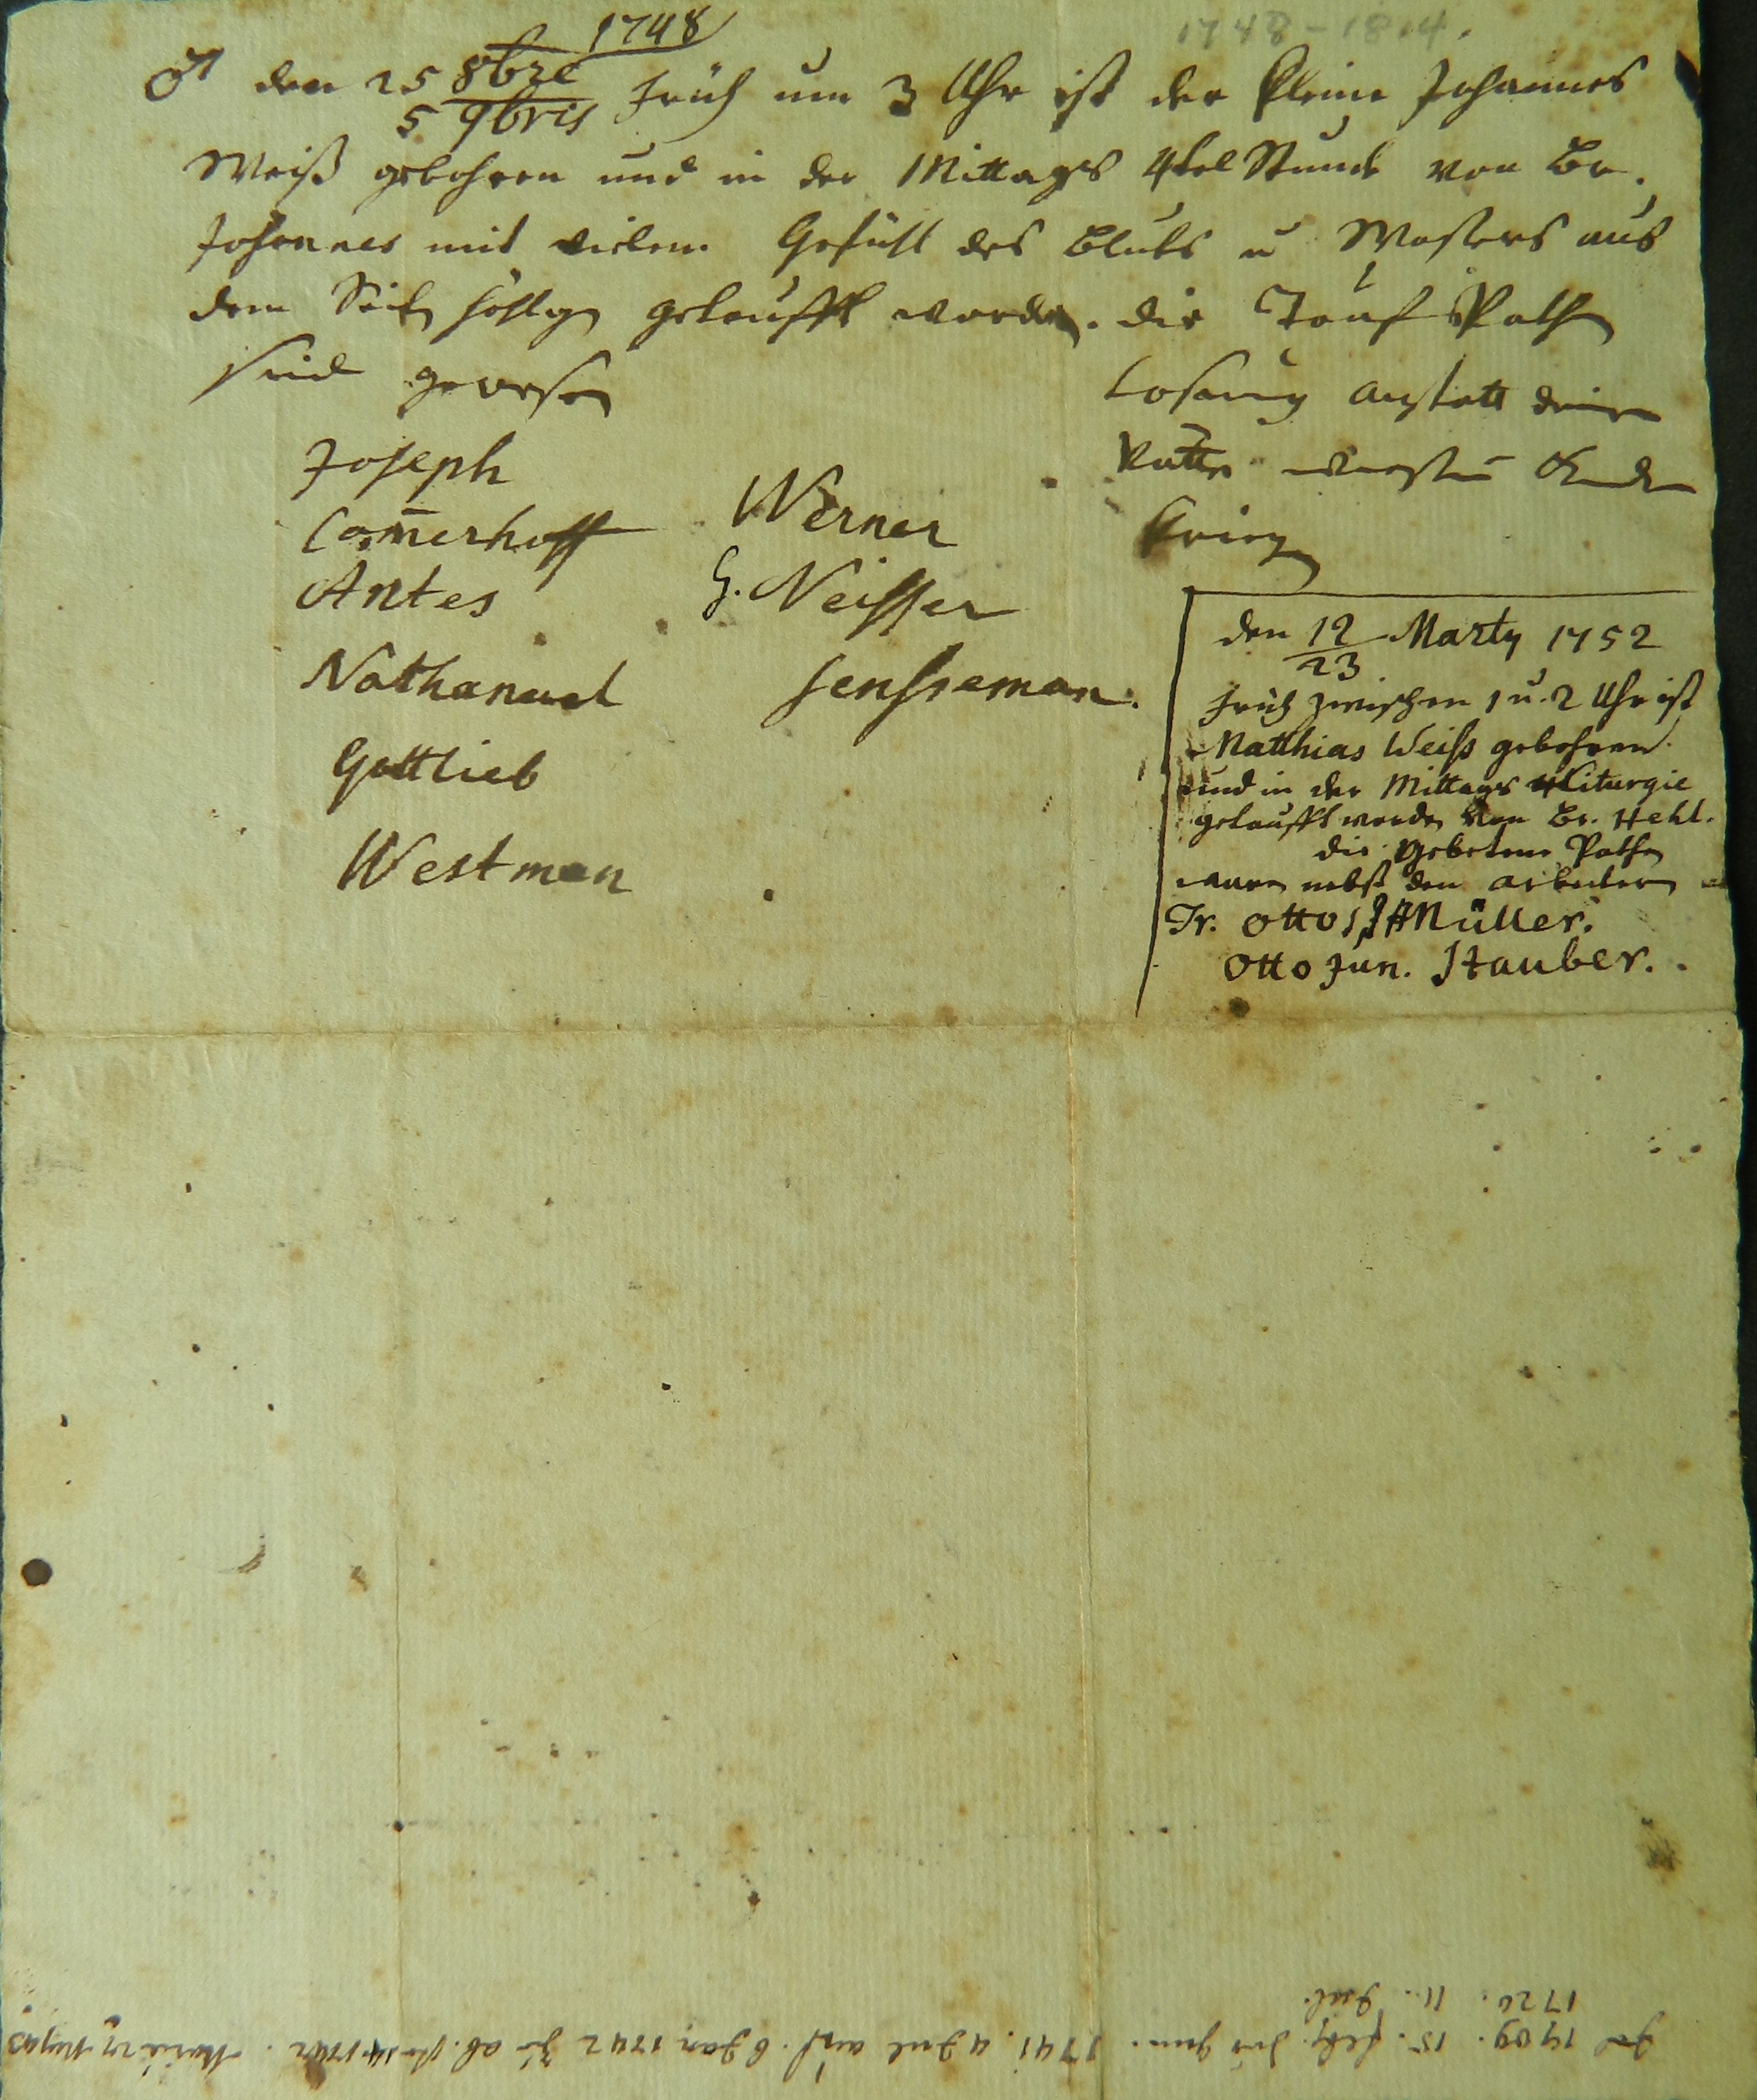 1748
1748-1814.
♂ den 25 8bre
5 9bris
Früh um 3 Uhr ist der kleine Johannes
Weiß gebohren und in der Mittags 4tel Stunde von Br.
Johannes mit vielem Gefühl des Bluts u Waßers aus
dem Seiten höhlgen getaufft worden. die Tauf Pathen
sind gewesen
Joseph
Com̄erhoff
Antes
Nathanael
Gottlieb
Westman
Werner
G. Neisser
Jensseman.
Losung anstatt deiner
Vätter wirstu Kinder
kriegen
den 12 Martÿ 1752
23
Früh zwischen 1 u. 2 Uhr ist
Matthias Weiss gebohren
und in der Mittags Liturgie
getaufft worden von Br. Hehl.
die gebetene Pathen
waren nebst den arbeitern
Fr. Otto, J Müller.
Otto Jun. Stauber.
1709. 15. 1741. 4 Jul 6 Jan 1742 1742.
1720. 11. Jul.